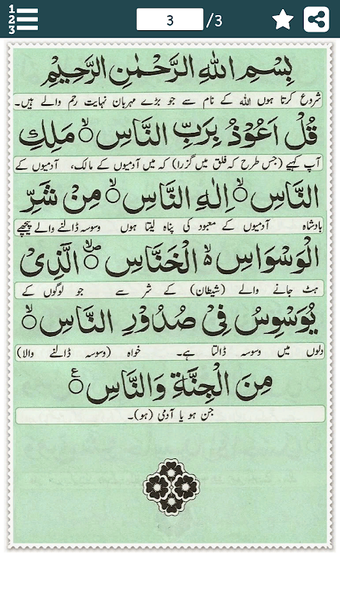 1
2
3
3 /3
بِسْمِ اللهِ الرَّحْمٰنِ الرَّحِيْمِ
شروع کرتا ہوں اللہ کے نام سے جو بڑے مہربان نہایت رحم والے ہیں۔
قُلْ اَعُوْذُ بِرَبِّ النَّاسِ ۙ مَلِكِ
آپ کہیے (جس طرح کہ فلق میں گزرا) کہ میں آدمیوں کے مالک، آدمیوں کے
النَّاسِ ۙ اِلٰهِ النَّاسِ ۙ مِنْ شَرِّ
بادشاہ آدمیوں کے معبود کی پناہ لیتا ہوں وسوسہ ڈالنے والے پیچھے
الْوَسْوَاسِ ۙ الْخَنَّاسِ ۪ۙ الَّذِیْ
ہٹ جانے والے (شیطان) کے شر سے جو لوگوں کے
یُوَسْوِسُ فِیْ صُدُوْرِ النَّاسِ ۙ
دلوں میں وسوسہ ڈالتا ہے۔ خواہ (وسوسہ ڈالنے والا)
مِنَ الْجِنَّةِ وَالنَّاسِ ۠
جن ہو یا آدمی (ہو)۔